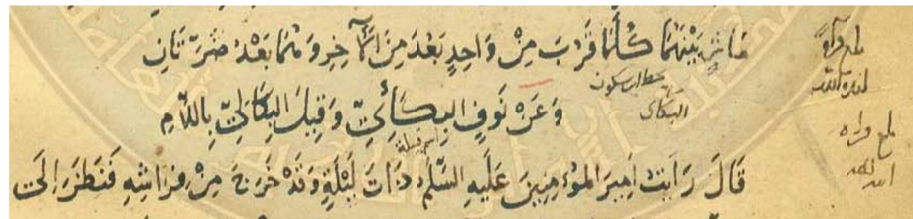 مَاشٍ بَيْنَهُمَا كُلَّمَا قَرُبَ مِنْ وَاحِدٍ بَعُدَ مِنَ الْآخِرِ وَهُمَا بَعْدُ ضَرَّتَانِ
وَعَنْ نَوْفٍ الْبِكَائِيِّ وَقِيلَ الْبِكَالِيِّ بِاللَّامِ
قَالَ رَأَيْتُ أَمِيرَ الْمُؤْمِنِينَ عَلَيْهِ السَّلَمُ ذَاتَ لَيْلَةٍ وَقَدْ خَرَجَ مِنْ فِرَاشِهِ فَنَظَرَ إِلَى
البكاى
اسم قبيلة
بلغ قراءة